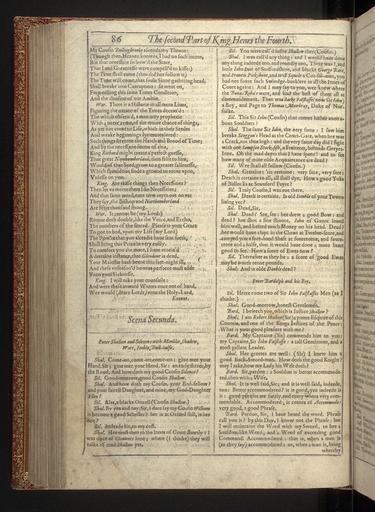 86 The second Part of King Henry the Fourth.
My Cousin Bullingbrooke ascends my Throne:
(Though then, Heaven knowes, I had no such intent,
But that necessitie so bow'd the State,
That I and Greatnesse were compell'd to kisse:)
The Time shall come (thus did hee follow it)
The Time will come, that foule Sinne gathering head,
Shall breake into Corruption: so went on,
Fore-telling this same Times Condition,
And the division of our Amitie.
War. There is a Historie in all mens Lives,
Figuring the nature of the Times deceas'd:
The which observ'd, a man may prophecie
With a neere ayme, of the maine chance of things,
As yet not come to Life, which in their Seedes
And weake beginnings lye entreasured:
Such things become the Hatch and Brood of Time;
And by the necessary forme of this,
King Richard might create a perfect guesse,
That great Northumberland, then false to him,
Would of that Seed, grow to a greater falsenesse,
Which should not finde a ground to roote upon,
Unlesse on you.
King. Are these things then Necessities?
Then let us meete them like Necessities;
And that same word, even now cryes out on us:
They say, the Bishop and Northumberland
Are fiftie thousand strong.
War. It cannot be (my Lord:)
Rumor doth double, like the Voice, and Eccho,
The numbers of the feared. Please it your Grace
To goe to bed, upon my Life (my Lord)
The Pow'rs that you alreadie have sent forth,
Shall bring this Prize in very easily.
To comfort you the more, I have receiv'd
A certaine instance, that Glendour is dead.
Your Majestie hath beene this fort-night ill,
And these unseason'd howres perforce must adde
Unto your Sicknesse.
King. I will take your counsaile:
And were these inward Warres once out of hand,
Wee would (deare Lords) unto the Holy-Land.
Exeunt.
Scena Secunda.
Enter Shallow and Silence: with Mouldie, Shadow,
Wart, Feeble, Bull-calfe.
Shal. Come-on, come-on, come-on: give mee your
Hand, Sir; give mee your Hand, Sir: an early stirrer, by
the Rood. And how doth my good Cousin Silence?
Sil. Good-morrow, good Cousin Shallow.
Shal. And how doth my Cousin, your Bed-fellow?
and your fairest Daughter, and mine, my God-Daughter
Ellen?
Sil. Alas, a blacke Ouzell (Cousin Shallow.)
Shal. By yea and nay, Sir, I dare say my Cousin William
is become a good Scholler? hee is at Oxford still, is hee
not?
Sil. Indeede Sir, to my cost.
Shal. Hee must then to the Innes of Court shortly: I
was once of Clements Inne; where (I thinke) they will
talke of mad Shallow yet.
Sil. You were call'd lustie Shallow then (Cousin.)
Shal. I was call'd any thing: and I would have done
any thing indeede too, and roundly too. There was I, and
little John Doit of Staffordshire, and blacke George Bare,
and Francis Pick-bone, and Will Squele a Cot-sal-man, you
had not foure such Swindge-bucklers in all the Innes of
Court againe: And I may say to you, wee knew where
the Bona-Roba's were, and had the best of them all at
commandement. Then was Jacke Falstaffe (now Sir John)
a Boy, and Page to Thomas Mowbray, Duke of Norfolke.
Sil. This Sir John (Cousin) that comes hither anon about
Souldiers?
Shal. The same Sir John, the very same: I saw him
breake Scoggan's Head at the Court-Gate, when hee was
a Crack, not thus high: and the very same day did I fight
with one Sampson Stock-fish, a Fruiterer, behinde Greyes-
Inne. Oh the mad dayes that I have spent! and to see
how many of mine olde Acquaintance are dead?
Sil. Wee shall all follow (Cousin.)
Shal. Certaine: 'tis certaine: very sure, very sure:
Death is certaine to all, all shall dye. How a good Yoke
of Bullocks at Stamford Fayre?
Sil. Truly Cousin, I was not there.
Shal. Death is certaine. Is old Double of your Towne
living yet?
Sil. Dead, Sir.
Shal. Dead? See, see: hee drew a good Bow: and
dead? hee shot a fine shoote. John of Gaunt loved
him well, and betted much Money on his head. Dead?
hee would have clapt in the Clowt at Twelve-score, and
carryed you a fore-hand Shaft at foureteene, and foure-
teene and a halfe, that it would have done a mans heart
good to see. How a score of Ewes now?
Sil. Thereafter as they be: a score of good Ewes
may be worth tenne pounds.
Shal. And is olde Double dead?
Enter Bardolph and his Boy.
Sil. Heere come two of Sir John Falstaffes Men (as I
thinke.)
Shal. Good-morrow, honest Gentlemen.
Bard. I beseech you, which is Justice Shallow?
Shal. I am Robert Shallow (Sir) a poore Esquire of this
Countie, and one of the Kings Justices of the Peace:
What is your good pleasure with me?
Bard. My Captaine (Sir) commends him to you:
my Captaine, Sir John Falstaffe: a tall Gentleman, and a
most gallant Leader.
Shal. Hee greetes me well: (Sir) I knew him a
good Back-Sword-man. How doth the good Knight?
may I aske, how my Lady his Wife doth?
Bard. Sir, pardon: a Souldier is better accommo-
dated, then with a Wife.
Shal. It is well said, Sir; and it is well said, indeede,
too: Better accommodated? it is good, yea indeede is
it: good phrases are surely, and every where very com-
mendable. Accommodated, it comes of Accommodo:
very good, a good Phrase.
Bard. Pardon, Sir, I have heard the word. Phrase
call you it? by this Day, I know not the Phrase: but
I will maintaine the Word with my Sword, to bee a
Souldier-like Word, and a Word of exceeding good
Command. Accommodated: that is, when a man is
(as they say) accommodated: or, when a man is, being
whereby